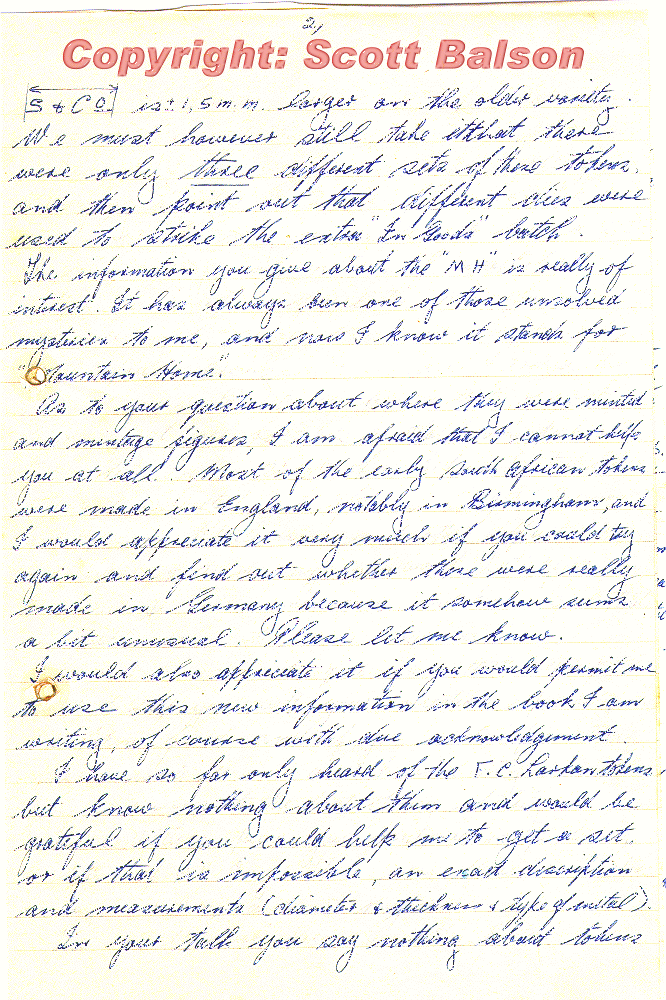 2,
Copyright: Scott Balson
S & Co. is ± 1,5 m.m. larger on the older varity.
We must however still take it that there
were only three different sets of these tokens,
and then point out that different dies were
used to strike the extra "In Goods" batch.
The information you give about the "M H" is really of
interest. It has always been one of those unsolved
mysteries to me, and now I know it stands for
"Mountain Home."
As to your question about where they were minted
and mintage figures, I am afraid that I cannot help
you at all. Most of the early South African tokens
were made in England, notably in Birmingham, and
I would appreciate it very much if you could try
again and find out whether these were really
made in Germany because it somehow seems
a bit unusual. Please let me know.
I would also appreciate it if you would permit me
to use this new information in the book I am
writing, of course with due acknowledgement
I have so far only heard of the F.C. Larkan tokens
but know nothing about them and would be
grateful if you could help me to get a set,
or if that is impossible, an exact description
and measurements (diameter & thickness & type of metal).
In your talk you say nothing about tokens